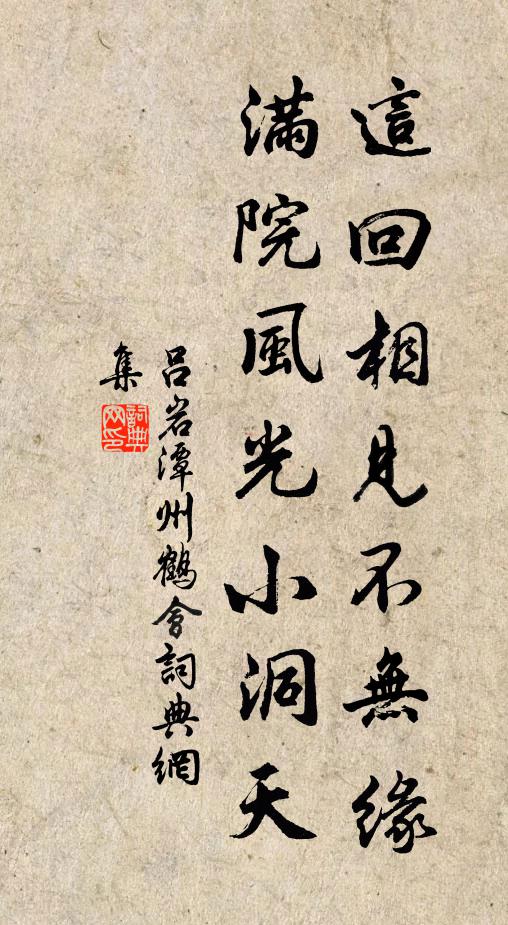 這回相見不無緣
滿院風光小洞天
呂岩潭州鶴會詞典網
集
詞典
网印